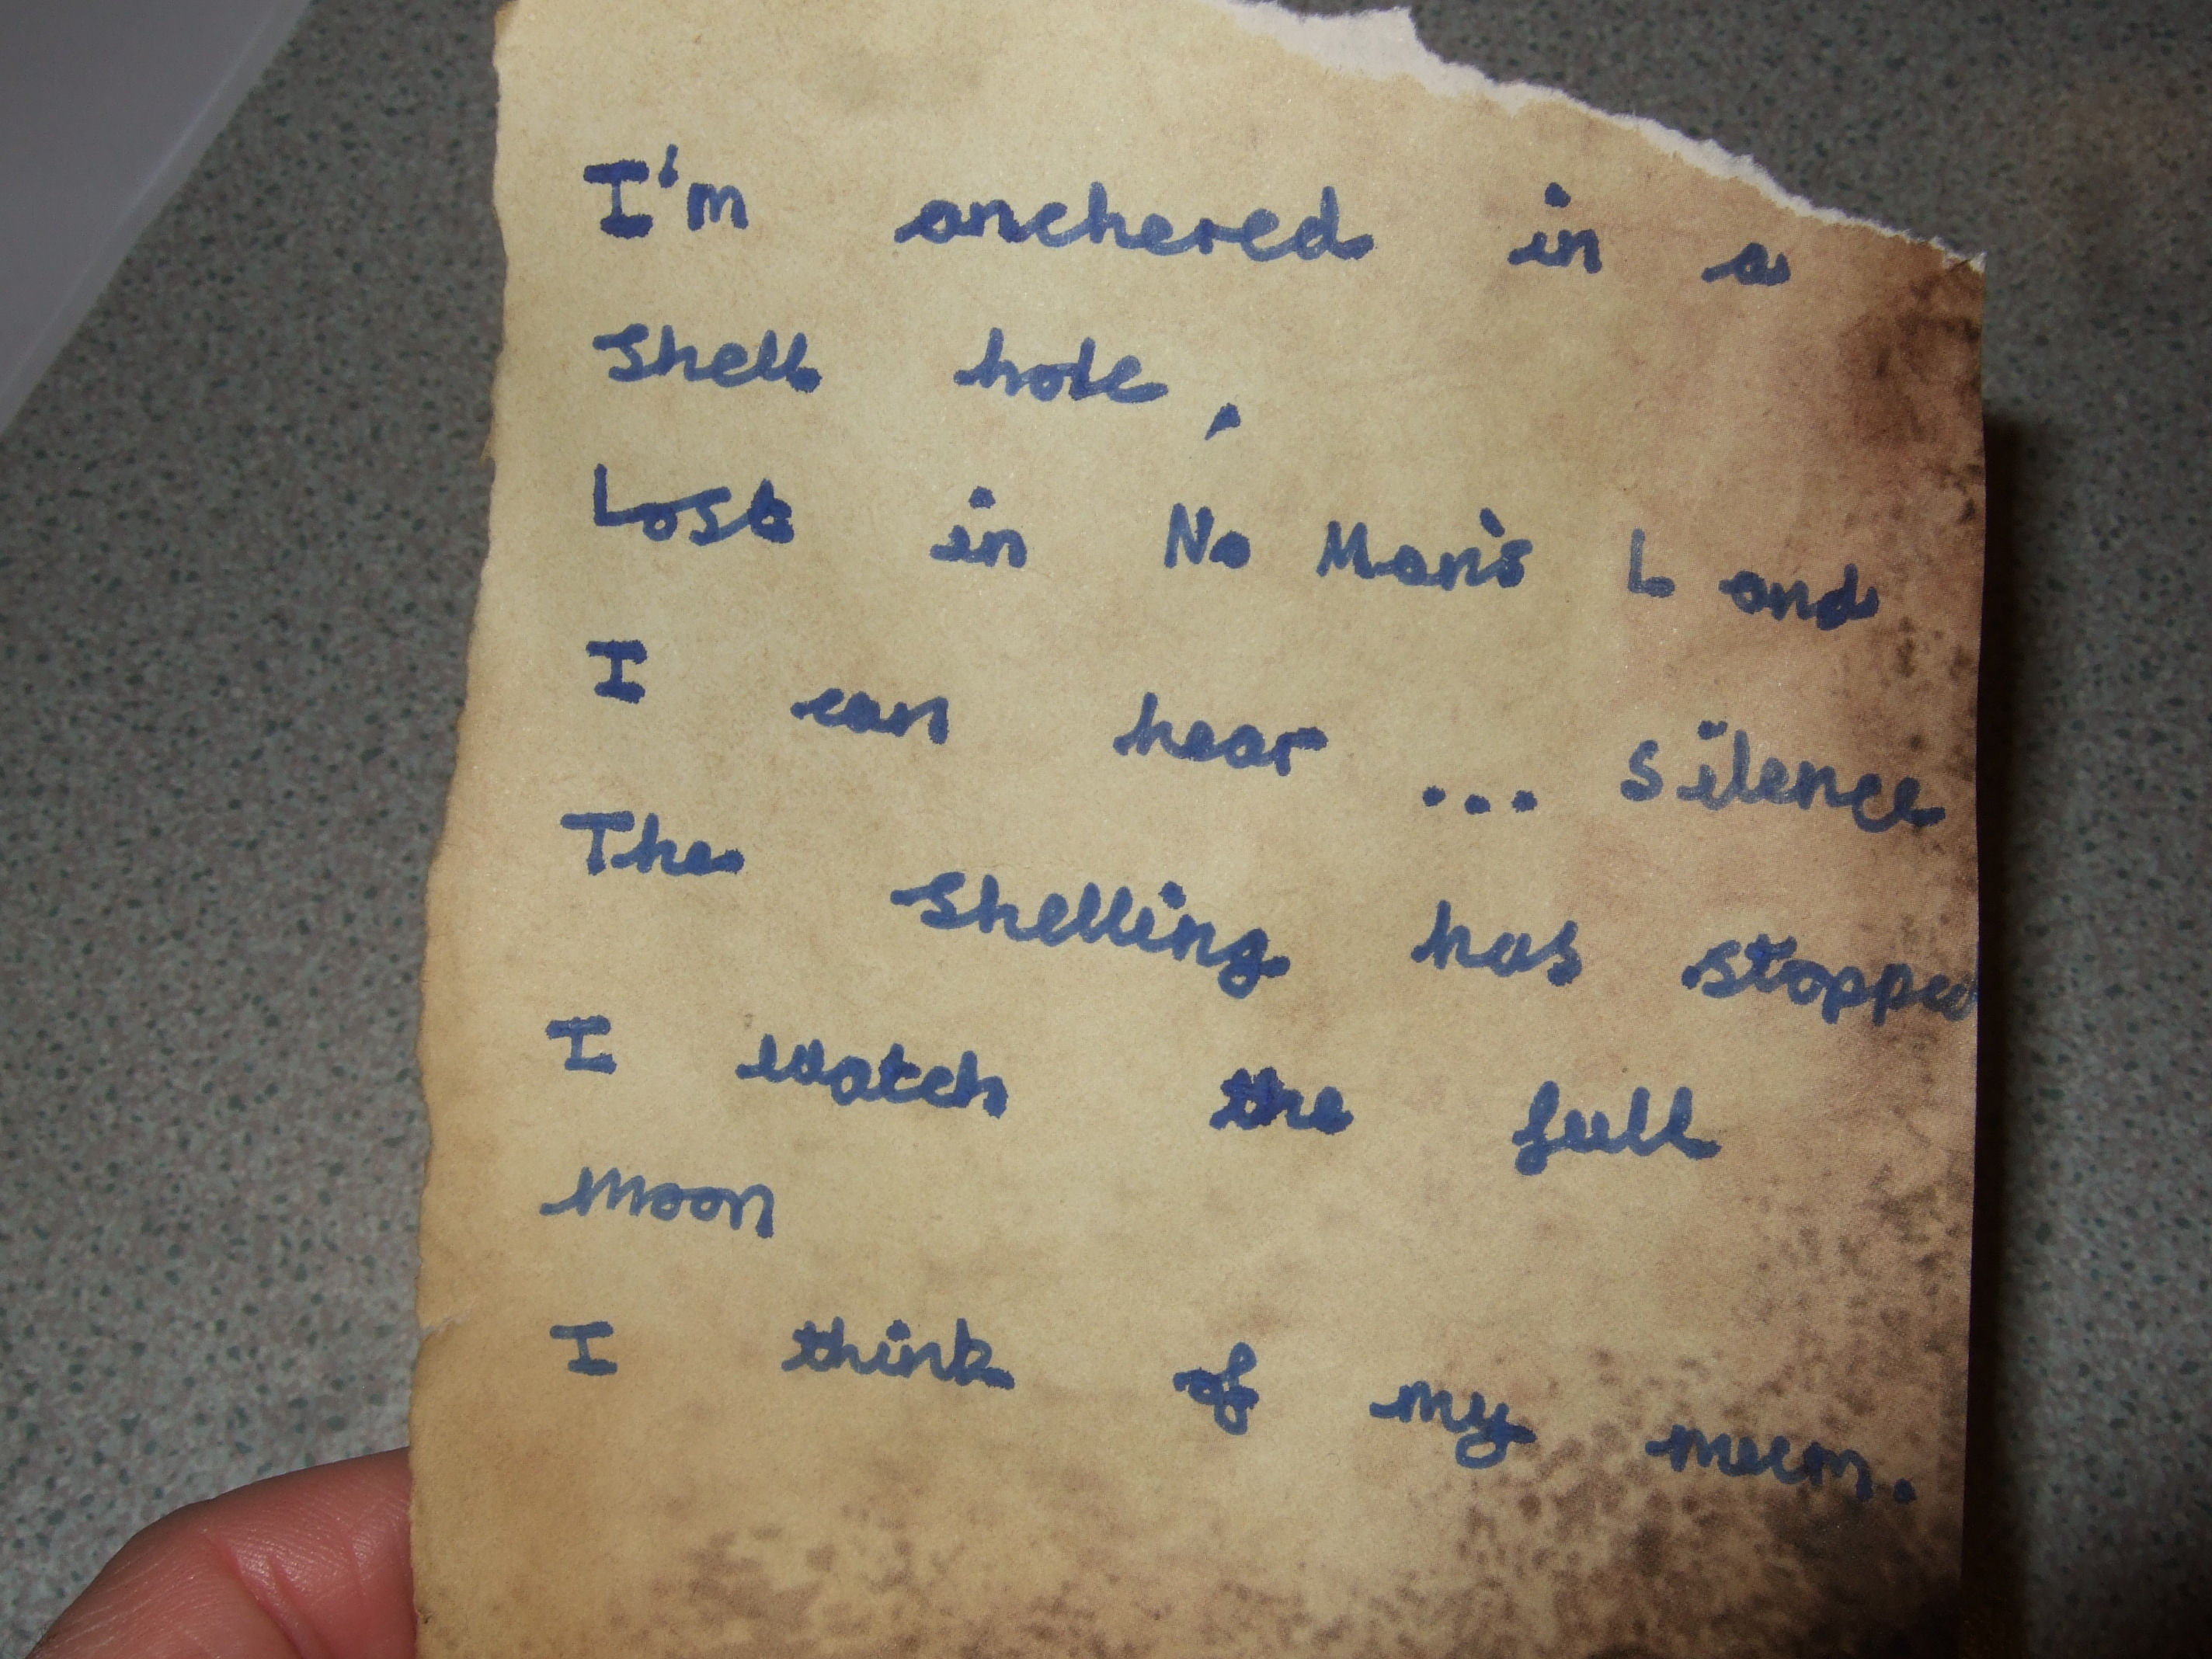 I'm anchered in a
shell hole,
Lost in No Man's Land
I can hear ... silence
The shelling has stopped
I watch the full
moon
I think of my mum.